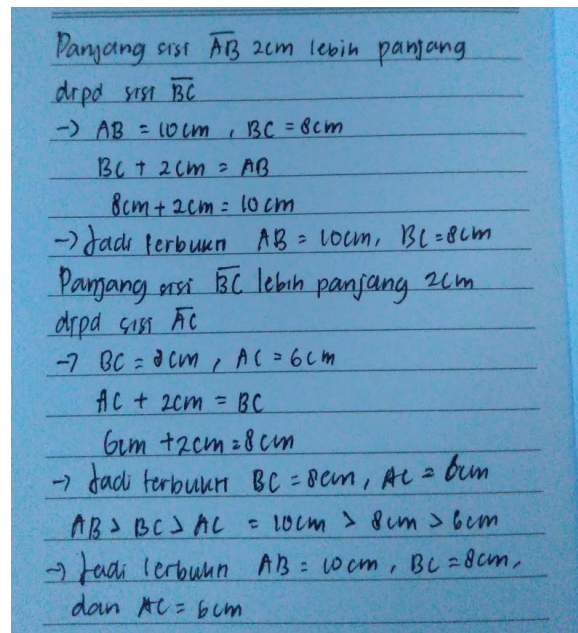 Panjang sisi A̅B̅ 2cm lebih panjang
drpd sisi B̅C̅
→ AB = 10cm , BC = 8cm
BC + 2cm = AB
8cm + 2cm = 10cm
→ Jadi terbukti AB = 10cm, BC = 8cm
Panjang sisi B̅C̅ lebih panjang 2cm
drpd sisi A̅C̅
→ BC = 8cm , AC = 6cm
AC + 2cm = BC
6cm + 2cm = 8cm
→ Jadi terbukti BC = 8cm, AC = 6cm
AB > BC > AC = 10cm > 8cm > 6cm
→ Jadi terbukti AB = 10cm , BC = 8cm,
dan AC = 6cm